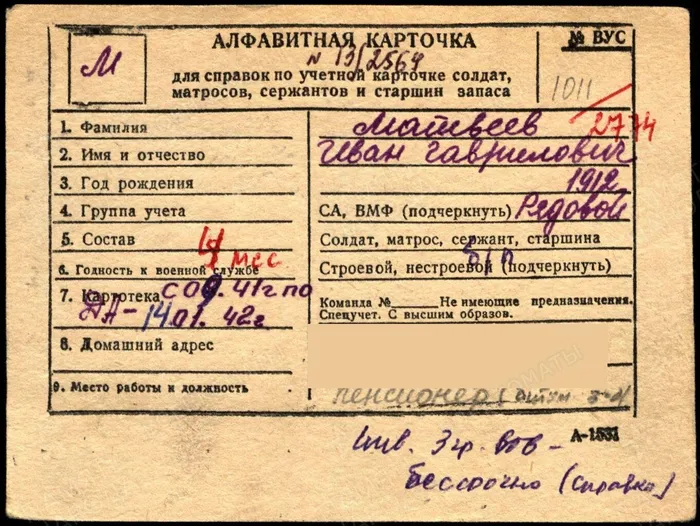 М
АЛФАВИТНАЯ КАРТОЧКА
№ 13/2564
для справок по учетной карточке солдат,
матросов, сержантов и старшин запаса
№ ВУС
1011
2774
1. Фамилия Матвеев
2. Имя и отчество Иван Гаврилович
3. Год рождения 1912
4. Группа учета СА, ВМФ (подчеркнуть) Рядовой
5. Состав Солдат, матрос, сержант, старшина
6. Годность к военной службе Строевой, нестроевой (подчеркнуть)
7. Картотека с 09.41г по
ДА - 14.01.42г
Команда № Не имеющие предназначения.
Спецучет. С высшим образов.
8. Домашний адрес
9. Место работы и должность пенсионер
А-1531
Инв. 3 гр. ВОВ -
бессрочно (справка)